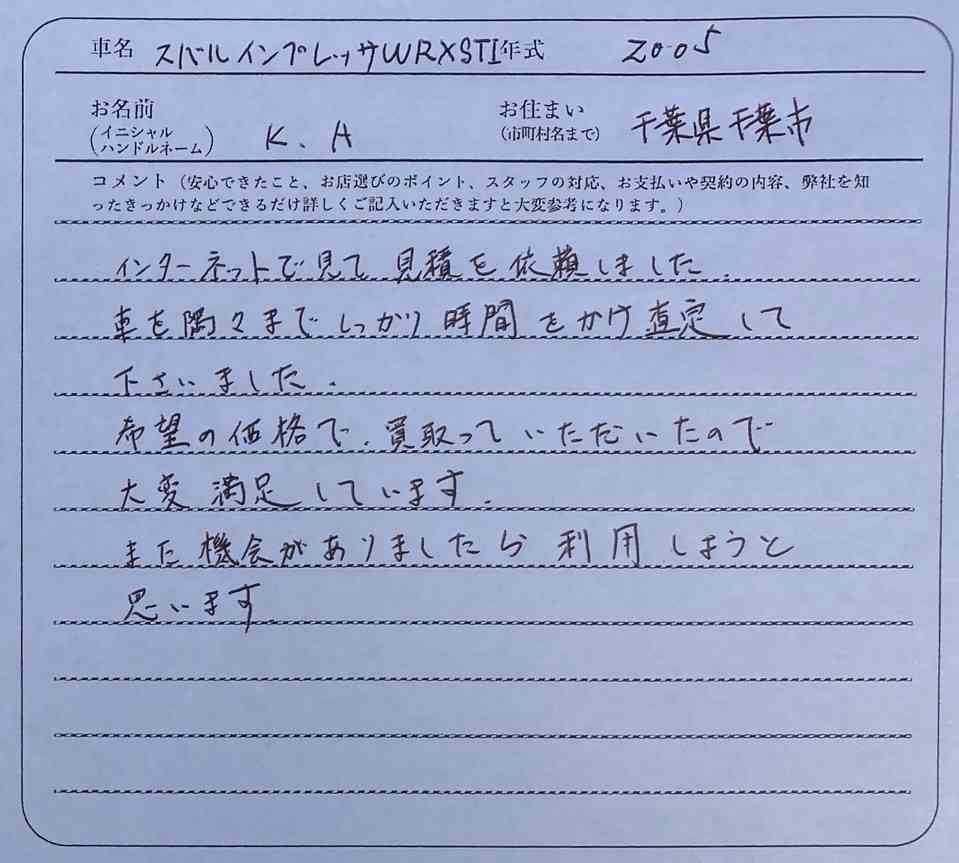 車名 スバルインプレッサWRXSTI 年式 2005
お名前 (イニシャル ハンドルネーム) K.A お住まい (市町村名まで) 千葉県千葉市
コメント（安心できたこと、お店選びのポイント、スタッフの対応、お支払いや契約の内容、弊社を知
ったきっかけなどできるだけ詳しくご記入いただきますと大変参考になります。）
インターネットで見て見積を依頼しました.
車を隅々までしっかり時間をかけ査定して
下さいました.
希望の価格で.買取っていただいたので
大変満足しています.
また機会がありましたら利用しようと
思います.